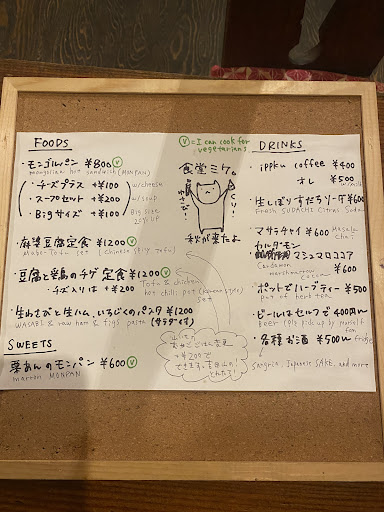 FOODS
・モンゴルパン ¥800 Ⓥ
mongolian hot sandwich (MONPAN)
・チーズプラス +¥100 w/cheese
・スープのセット +¥200 w/soup
・Bigサイズ +¥100 Big size
・麻婆豆腐定食 ¥1200 Ⓥ
Mabo-Tofu set (chinese spicy tofu)
・豆腐と鶏のチゲ定食 ¥1200 Ⓥ
チーズ入りは +¥200
Tofu & chicken
hot chili pot (korean style)
set
・生わさびと生ハム、いちじくのパスタ ¥1200
WASABI & raw ham & figs pasta (サラダ付)
SWEETS
・栗あんのモンパン ¥600 Ⓥ
marron MONPAN
Ⓥ=I can cook for
vegetarians
食堂ミケ。
わさび!
くり!
秋が来たよ
DRINKS
・ippku coffee ¥400
・オレ ¥500
・生しぼりすだちソーダ ¥600
Fresh SUDACHI Citrus Soda
・マサラチャイ ¥600 Masala
chai
・カルダモン
マシュマロココア
Cardamon
marshmallow
cocoa
¥600
・ポットでハーブティー ¥500
pot of herb tea
・ビールはセルフで 400円〜
Beer (pls pick up by yourself
from fridge)
・各種お酒 ¥500〜
Sangria, Japanese SAKE, and more